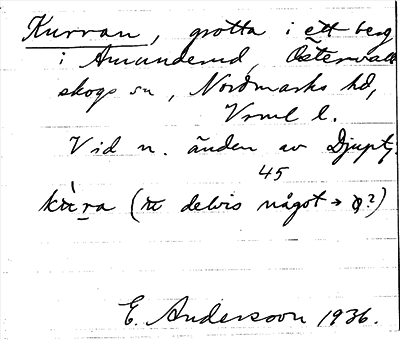 Kurran, grotta i ett berg
i Amunderud, Östervall
skogs sn, Nordmarks hd,
Vrml l.
Vid n. änden av Djupty.
45
(u delvis något → ?)
E. Andersson 1936.